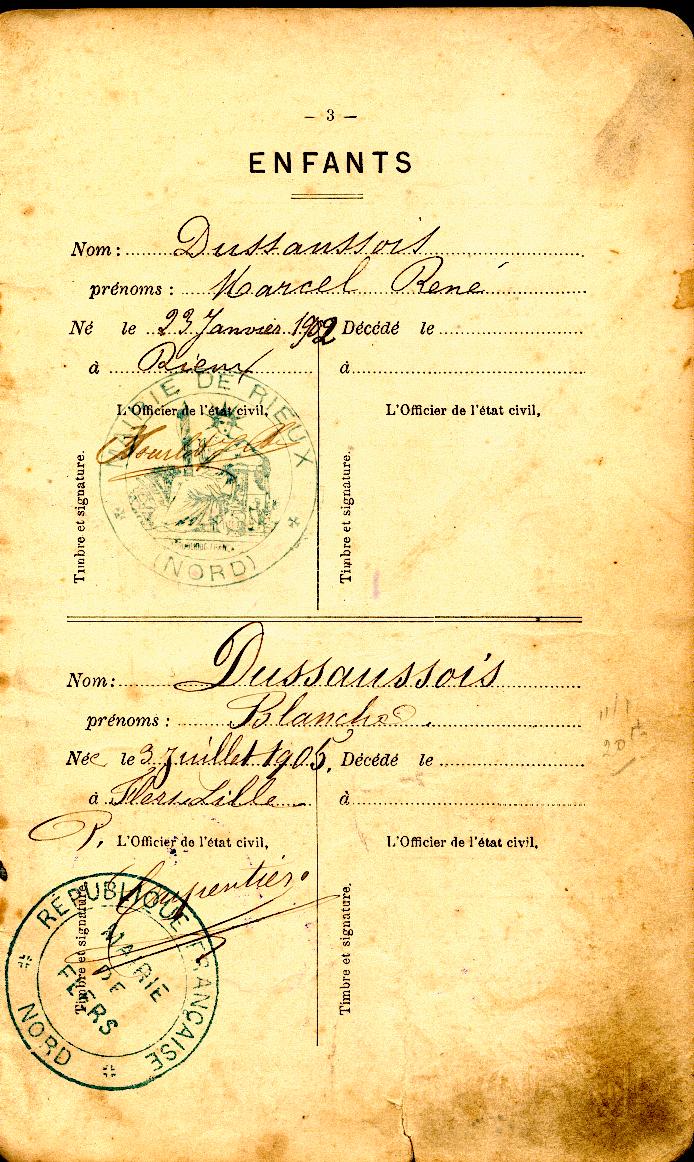 — 3 —
ENFANTS
Nom : Dussaussois
prénoms : Marcel René
Né le 23 Janvier 1902 Décédé le
à Rieux à
L'Officier de l'état civil, L'Officier de l'état civil,
Timbre et signature. Timbre et signature.
MAIRIE DE RIEUX
(NORD)
Nom : Dussaussois
prénoms : Blanche
Née le 3 Juillet 1905, Décédé le
à Flers Lille à
P. L'Officier de l'état civil, L'Officier de l'état civil,
Carpentier
Timbre et signature. Timbre et signature.
RÉPUBLIQUE FRANÇAISE
MAIRIE
DE
FLERS
NORD